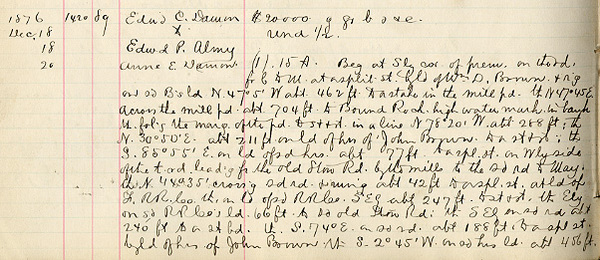 1876 1420 89 Edwd C. Damon $20000 q gr b s xe.
Dec. 18 X und 1/2.
18 Edwd P. Almy
20 Anne E. Damon (1). 15 A. Beg at Sly cor. of prem. on the rd.
fr C to M. at a split st. by ld of Wm D. Brown & rg
on sd B's ld N. 47°5' W abt 462 ft to a stake in the mill pd. th N 47°45' E
across the mill pd. abt 704 ft to Bound Rock. high water mark. in bank
th. folg the marg of the pd. to st & st. in a line N 78°20' W abt 288 ft; th
N. 30°50' E. abt 211 ft on ld of hrs of John Brown to a st & st; th
S. 85°55' E. on ld of sd hrs. abt 77 ft. to a spl. st. on Wly side
of the t. rd. leadg fr the old Stow Rd. by the mills to the sd rd to May;
th N. 48°35' crossg sd rd & rung abt 42 ft to a spl. st. at ld of
F. RR. Co. th. on ld of sd RR Co. S'Ely abt 247 ft. to st & st. th Ely
on sd RR Co's ld 66 ft to sd old Stow Rd: th S'Ely on sd rd abt
240 ft to a st bd. th. S. 74° E. on sd rd. abt 188 ft to a spl st.
by ld of hrs of John Brown th S. 2°45' W. on sd hrs ld. abt 456 ft.